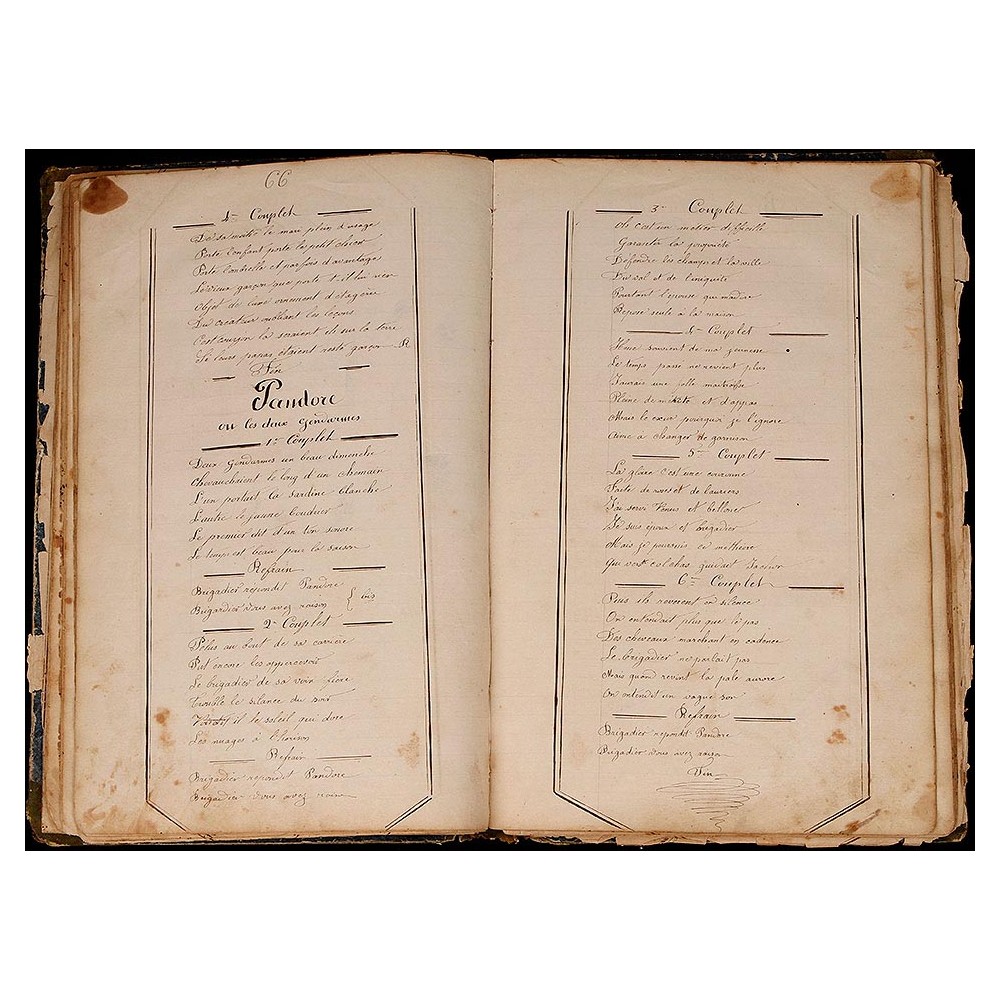 66
4me Couplet
le mari plein d'usage
Porte l'enfant porte le petit chien
Porte l'ombrelle et parfois d'avantage
Le vieux garçon que porte t-il lui rien
Objet de luxe ornement d'étagère
Du créateur oubliant les leçons
la seraient ils sur la terre
Si leurs papas étaient resté garçon R
Fin
Pandore
ou les deux Gendarmes
1er Couplet
Deux Gendarmes un beau dimanche
Chevauchaient le long d'un chemain
L'un portait la sardine blanche
L'autre le jaune boudrier
Le premier dit d'un ton sonore
Le temps est beau pour la saison
Refrain
Brigadier repondit Pandore
Brigardier vous avez raison } bis
2me Couplet
Phébus au bout de sa carrière
Put encore les appercevoir
Le brigadier de sa voix fière
Troubla le silance du soir
il le soleil qui dore
Les nuages à l'horison
Refrain
Brigadier repondit Pandore
Brigadier vous avez raison
3me Couplet
Ah c'est un metier difficille
Garantir la propriété
Défendre les champs et la ville
Du vol et de l'iniquité
Pourtant l'épouse qui
Repose seule à la maison
4me Couplet
Il me souvient de ma jeunesse
Le temps passé ne revient plus
J'avais une folle maitresse
Pleine de et d'appas
Mais le cœur pourquoi je l'ignore
Aime à changer de garnison
5me Couplet
La gloire c'est une couronne
Faite de rose et de lauriers
J'ai servi Venus et bellone
Je suis époux et brigadier
Mais je poursuis ce métheore
Qui vers colchos guidait Jason
6me Couplet
Puis ils reverent en silence
On entendait plus que le pas
Des cheveaux marchant en cadence
Le brigadier ne parlait pas
Mais quand revint la pale aurore
On entendit un vague son
Refrain
Brigadier repondit Pandore
Brigadier vous avez raison
Fin